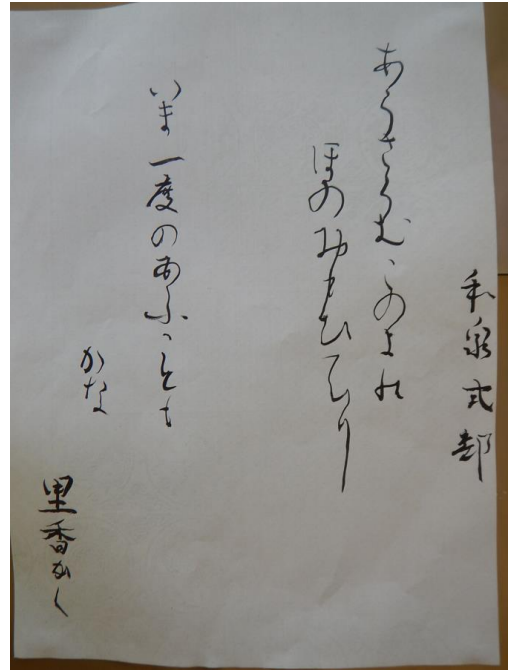 和泉式部
あらさらむこのよの
ほのおもひてに
いま一度のあふことも
かな
里香かく